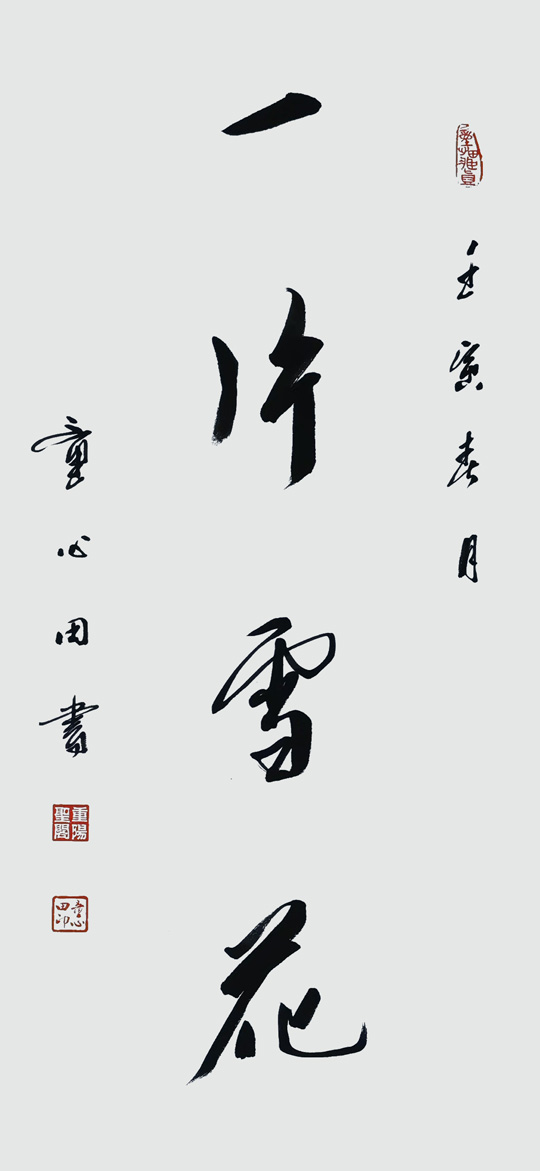 壬寅春月
一片雪花
童心田書
重陽聖閣
童心田印